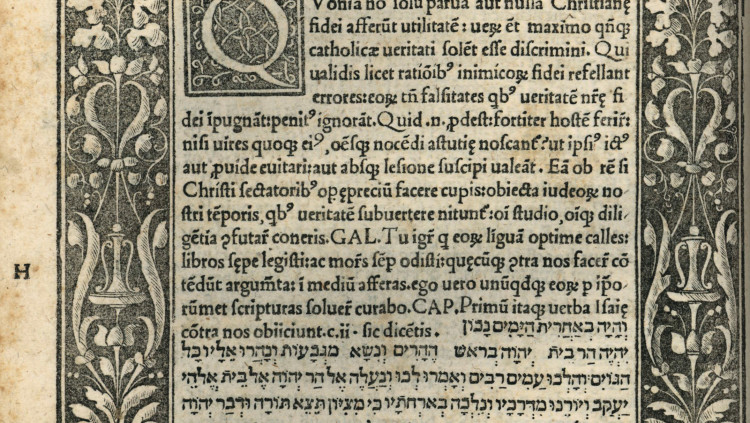 Q Voniā nō solū parua aut nulla Christianę
fidei afferūt utilitatē: uerꝝ ēt maximo qñqꝫ
catholicæ ueritati solēt esse discrimini. Qui
ualidis licet ratiōibꝰ inimicoꝝ fidei refellant
errores:eoꝝ tñ falsitates qbꝰ ueritatē nr̄ę fi
dei īpugnāt:penitꝰ ignorāt.Quid.n.ꝓdest:fortiter hostē ferir̄:
nisi uires quoqꝫ eiꝰ,oēsqꝫ nocēdi astutię noscant̄?ut ipsiꝰ ictꝰ
aut ꝓuide euitari:aut absqꝫ lesione suscipi ualeāt. Eā ob rē si
Christi sectatoribꝰ opępreciū facere cupis:obiecta iudeoꝝ no
stri tēporis,qbꝰ ueritatē subuertere nitunt̄:oī studio,oīqꝫ dili
gētia ↄ̄futar̄ coneris.GAL.Tu igr̄ q eoꝝ līguā optime calles:
libros sępe legisti:ac mor̄s sēp odisti:quęcūqꝫ ↄ̄tra nos facer̄ cō
tēdūt argum̄ta:ī mediū afferas.ego uero unūqdqꝫ eoꝝ p ip̄o⸗
rūmet scripturas soluer̄ curabo.CAP.Primū itaqꝫ uerba Isaię
cōtra nos obiiciunt.c.ii·sic dicētis. וְהָיָה בְאַחֲרִית הַיָּמִים נָכוֹן
יִהְיֶה הַר בֵּית יְהוָה בְּראֹשׁ הֶהָרִים וְנִשָּׂא מִגְּבָעוֹת וְנָהֲרוּ אֵלָיו כָּל
הַגּוֹיִם וְהָלְכוּ עַמִּים רַבִּים וְאָמְרוּ לְכוּ וְנַעֲלֶה אֶל הַר יְהוָה אֶל בֵּית אֱלֹהֵי
יַעֲקֹב וְיוֹרֵנוּ מִדְּרָכָיו וְנֵלְכָה בְּאֹרְחֹתָיו כִּי מִצִּיוֹן תֵּצֵא תוֹרָה וּדְבַר יְהוָה
H